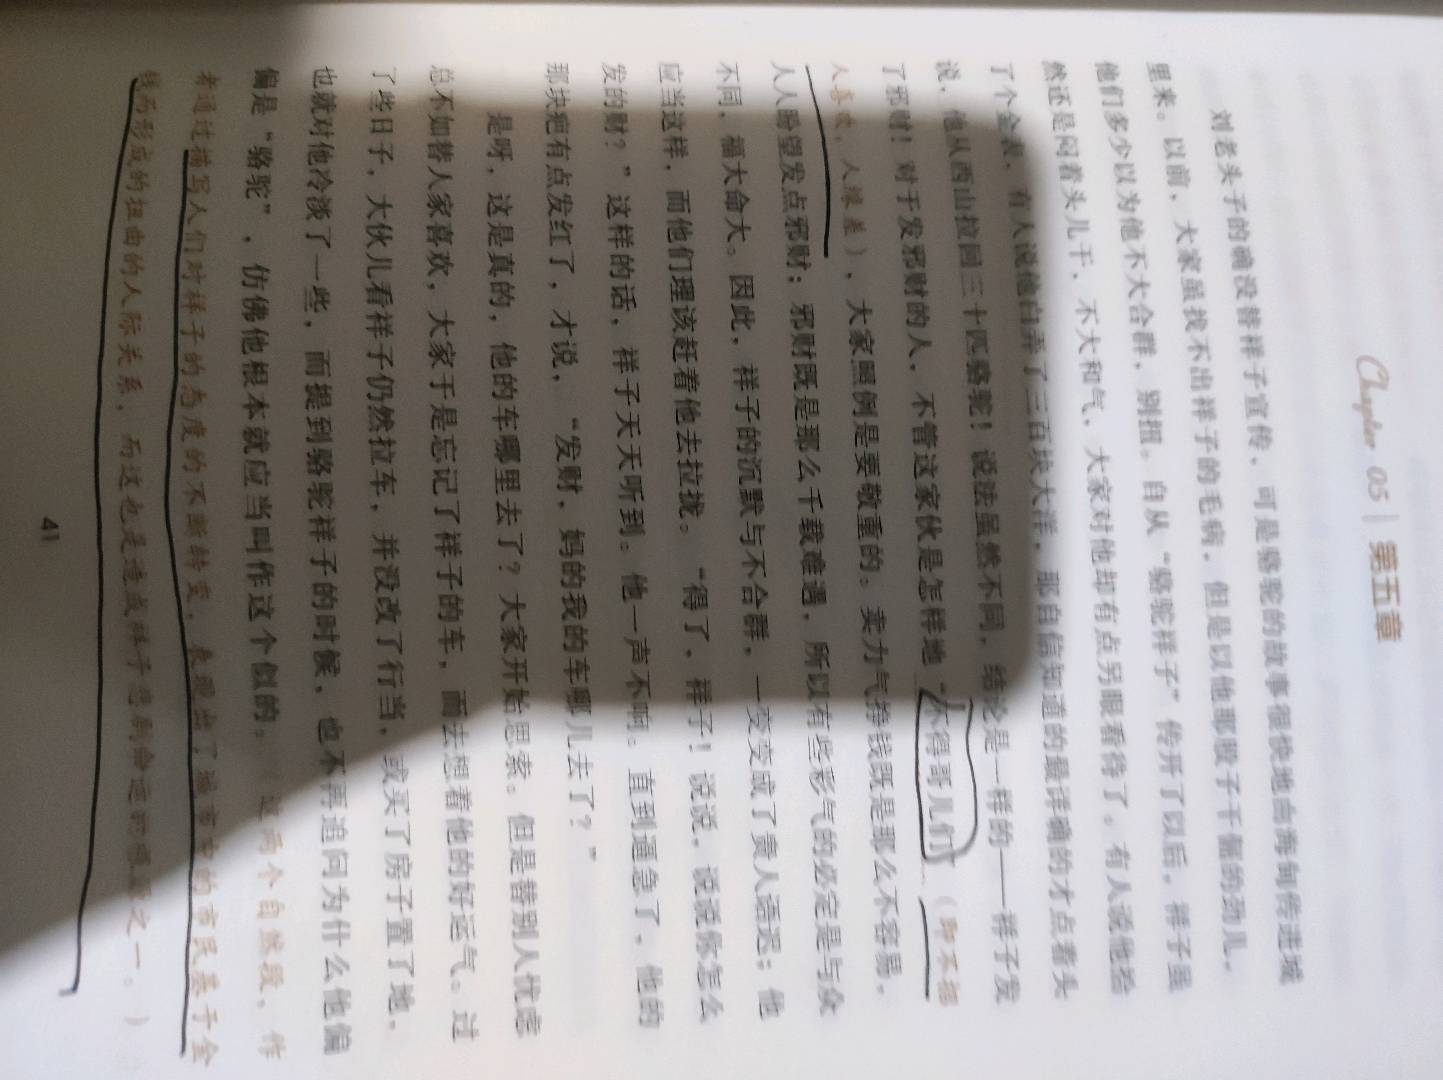 Chapter 05 | 第五章
刘老头子的确没替祥子宣传，可是骆驼的故事很快地由海甸传进城
里来。以前，大家虽找不出祥子的毛病，但是以他那股子干倔的劲儿，
他们多少以为他不大合群，别扭。自从“骆驼祥子”传开了以后，祥子虽
然还是闷着头儿干，不大和气，大家对他却有点另眼看待了。有人说他拾
了个金表，有人说他白弄了三百块大洋，那自信知道的最详确的才点着头
说，他从西山拉回三十匹骆驼！说法虽然不同，结论是一样的——祥子发
了邪财！对于发邪财的人，不管这家伙是怎样地“不得哥儿们”（即不招
人喜欢，人缘差），大家照例是要敬重的。卖力气挣钱既是那么不容易，
人人盼望发点邪财；邪财既是那么千载难遇，所以有些彩气的必定是与众
不同，福大命大。因此，祥子的沉默与不合群，一变变成了贵人语迟；他
应当这样，而他们理该赶着他去拉拢。“得了，祥子！说说，说说你怎么
发的财？”这样的话，祥子天天听到。他一声不响。直到逼急了，他的
那块疤有点发红了，才说，“发财，妈的我的车哪儿去了？”
是呀，这是真的，他的车哪里去了？大家开始思索。但是替别人忧虑
总不如替人家喜欢，大家于是忘记了祥子的车，而去想着他的好运气。过
了些日子，大伙儿看祥子仍然拉车，并没改了行当，或买了房子置了地，
也就对他冷淡了一些，而提到骆驼祥子的时候，也不再追问为什么他偏
偏是“骆驼”，仿佛他根本就应当叫作这个似的。（这两个自然段，作
者通过描写人们对祥子的态度的不断转变，表现出了城市中的市民基于金
钱而形成的扭曲的人际关系，而这也是造成祥子悲剧命运的根源之一。）
41